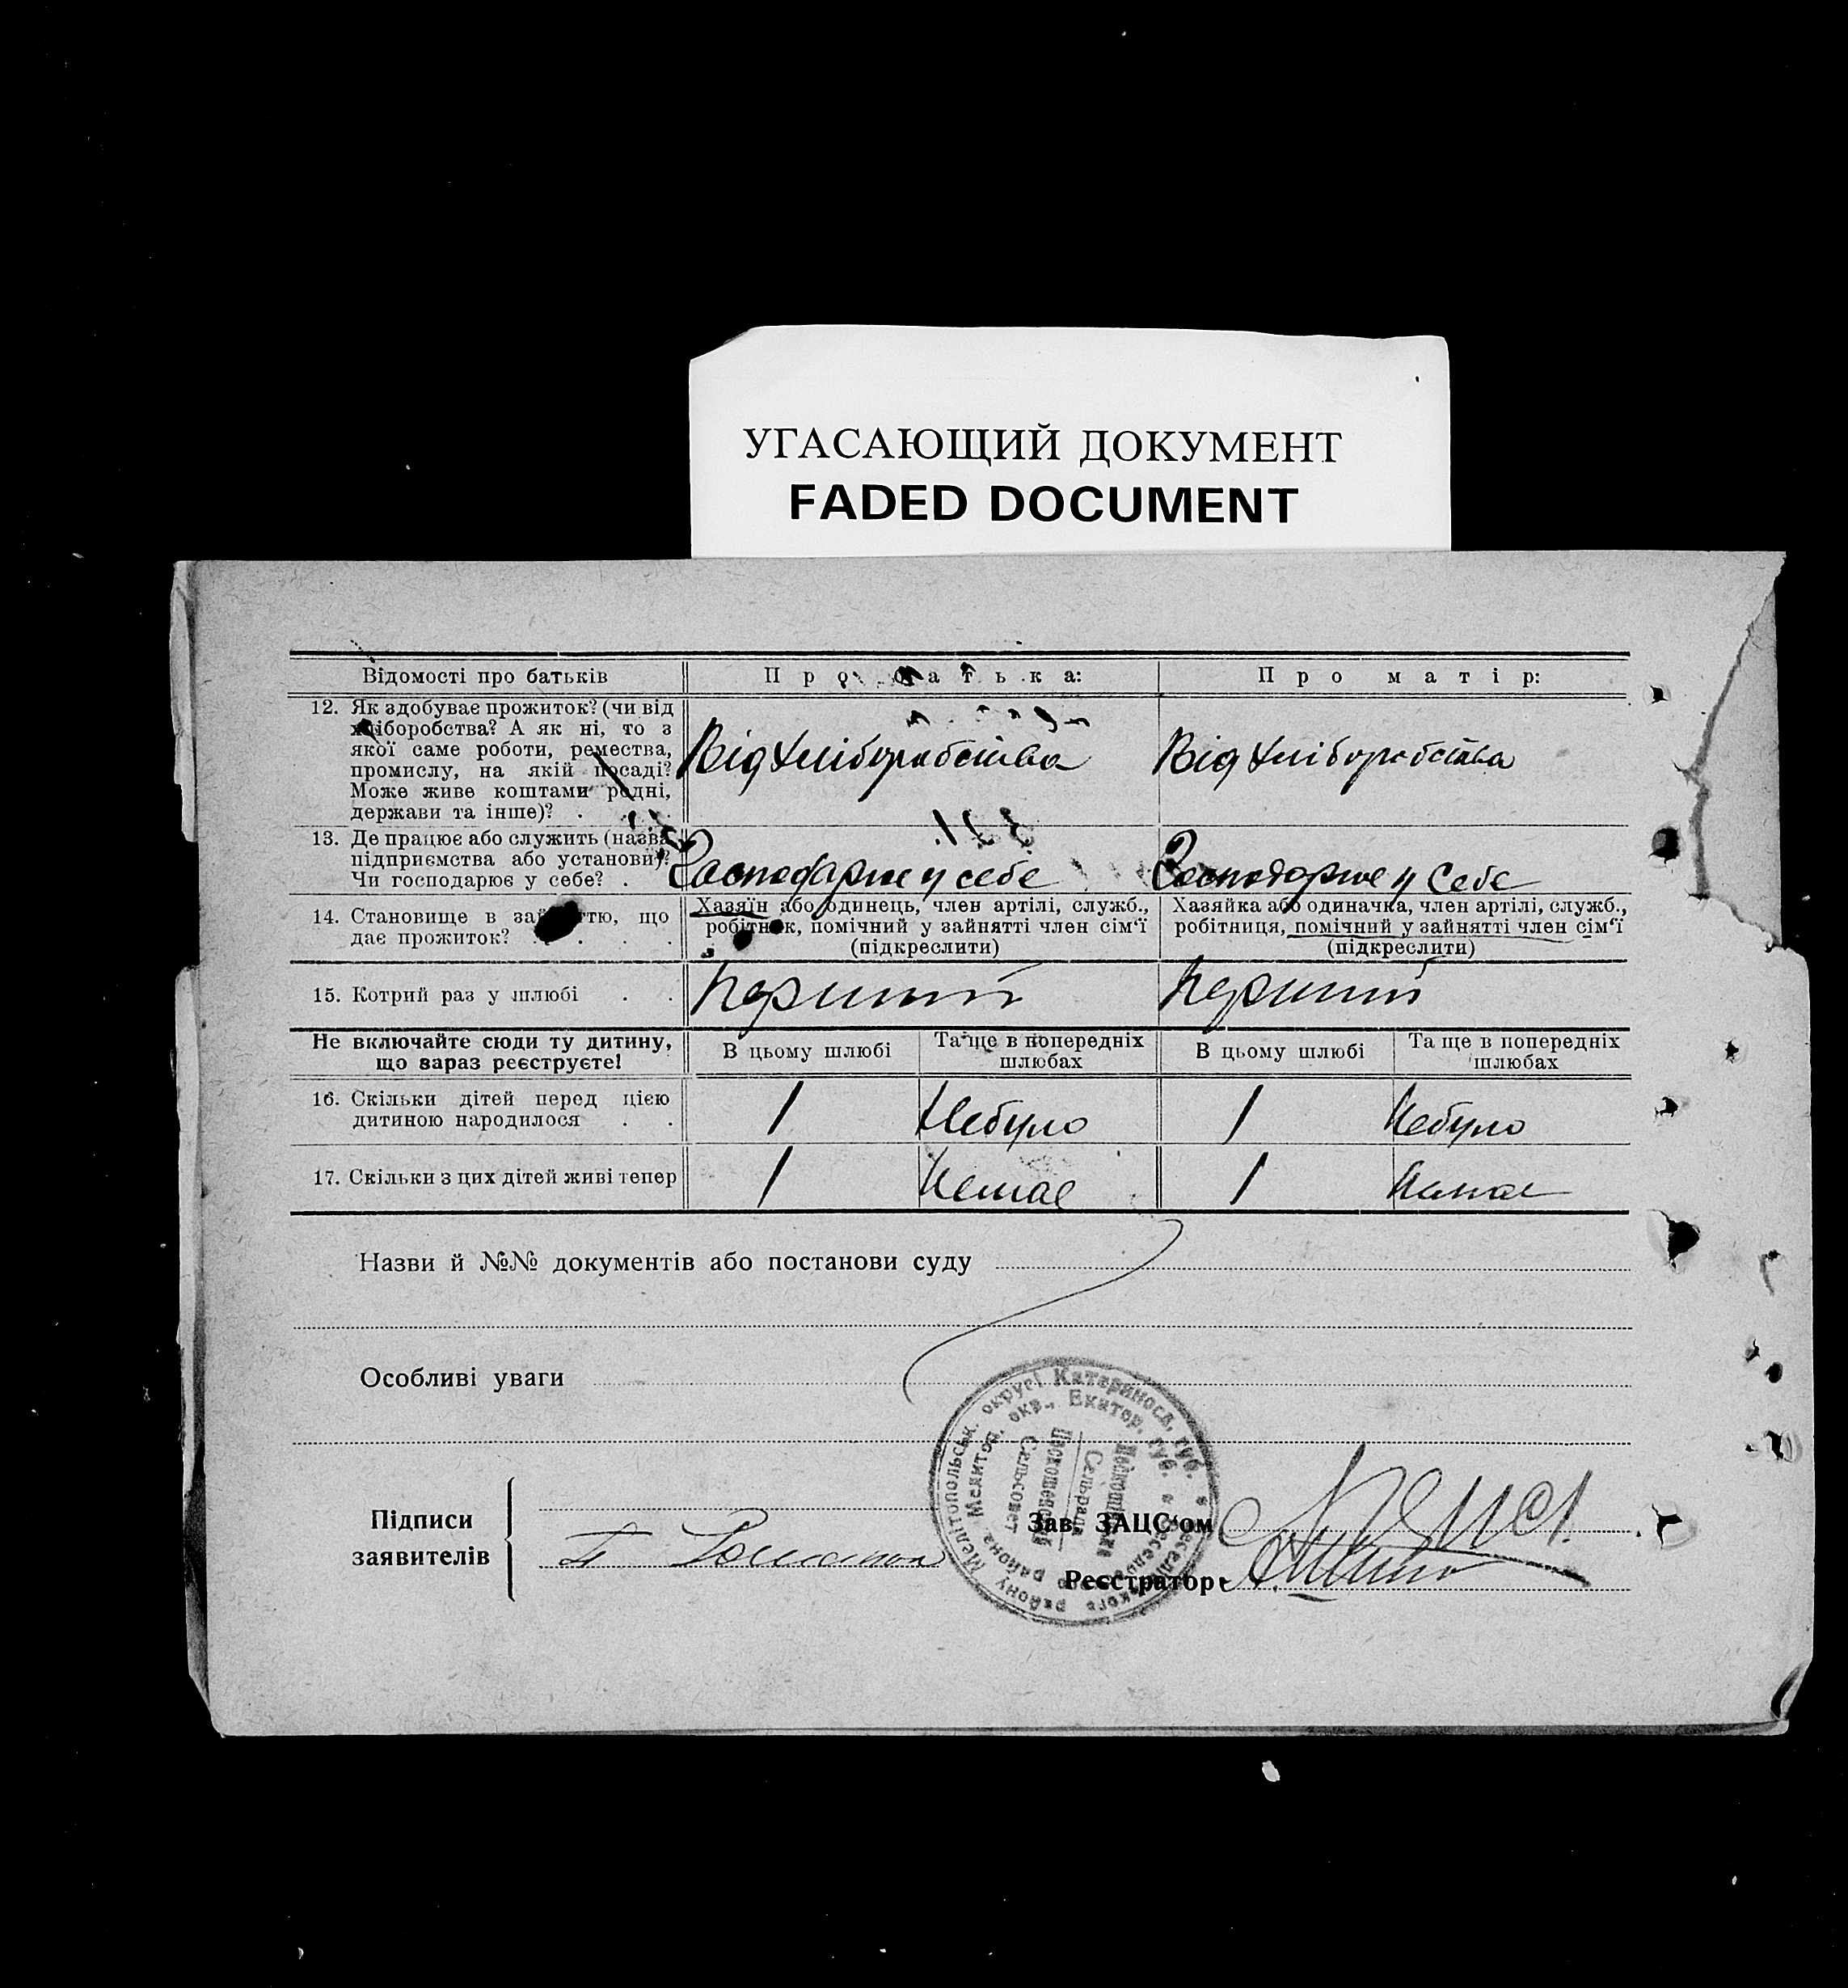 УГАСАЮЩИЙ ДОКУМЕНТ
FADED DOCUMENT
Відомості про батьків
Про батька:
Про матір:
12. Як здобуває прожиток? (чи від
хліборобства? А як ні, то з
якої саме роботи, ремества,
промислу, на якій посаді?
Може живе коштами родні,
держави та інше)? .
Від хліборобства
Від хліборобства
13. Де працює або служить (назва
підприємства або установи)?
Чи господарює у себе? .
Господарює у себе
Господарює у себе
14. Становище в зайняттю, що
дає прожиток? . . . .
Хазяїн або одинець, член артілі, служб.,
робітник, помічний у зайнятті член сім'ї
(підкреслити)
Хазяйка або одиначка, член артілі, служб.,
робітниця, помічний у зайнятті член сім'ї
(підкреслити)
15. Котрий раз у шлюбі . .
Перший
Перший
Не включайте сюди ту дитину,
що вараз реєструєте!
В цьому шлюбі
Та ще в попередніх
шлюбах
В цьому шлюбі
Та ще в попередніх
шлюбах
16. Скільки дітей перед цією
дитиною народилося . .
1
Небуло
1
Небуло
17. Скільки з цих дітей живі тепер
1
Немає
1
Немає
Назви й №№ документів або постанови суду
Особливі уваги
Підписи
заявителів
Зав. ЗАЦС'ом
Реєстратор
Мелітопольськ. округи Катеринос. губ.
Мелитоп. окр., Екатер. губ.
Сельсовет
Сельрада
району
района